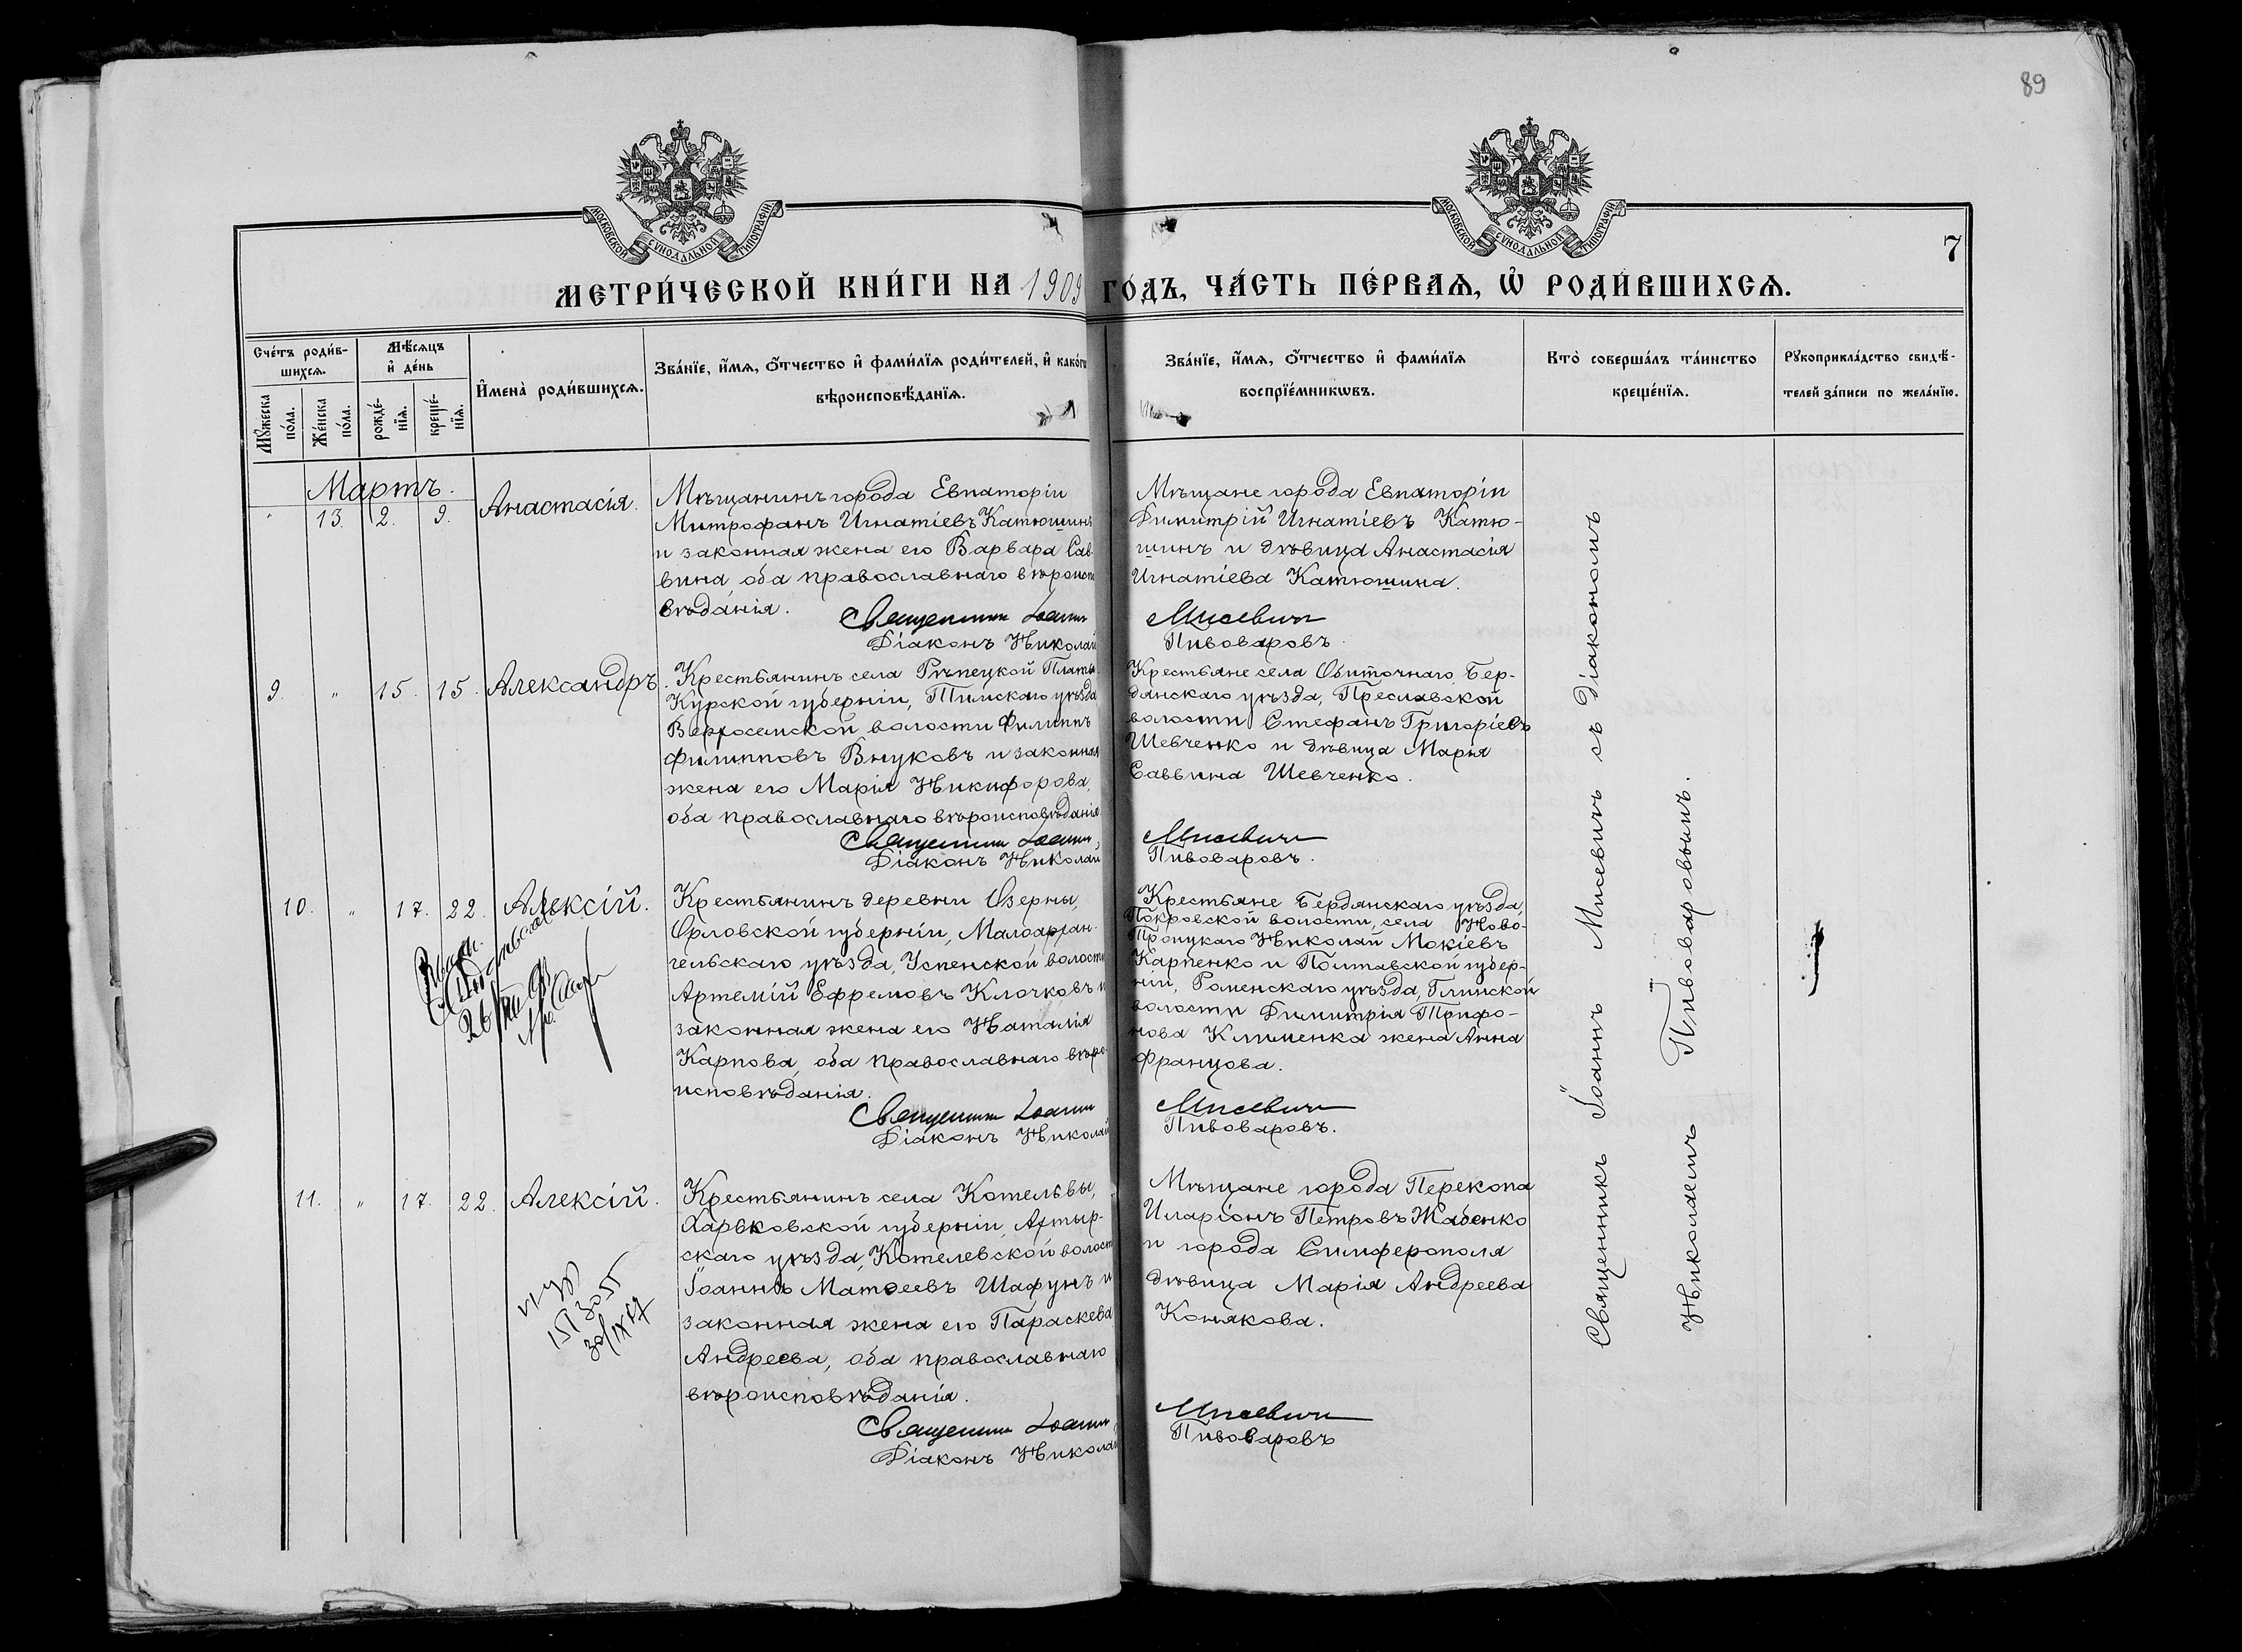 89
7
МОСКОВСКОЙ СѴНОДАЛЬНОЙ ТИПОГРАФІИ
МОСКОВСКОЙ СѴНОДАЛЬНОЙ ТИПОГРАФІИ
МЕТРИ́ЧЕСКОЙ КНИ́ГИ НА 1909 ГО́ДЪ, ЧА́СТЬ ПЕ́РВАѦ, Ѡ҆ РОДИ́ВШИХСѦ.
Сче́тъ роди́в-
шихсѧ.
Мꙋ́жеска
по́ла.
Же́нска
по́ла.
Мѣ́сѧцъ
и҆ де́нь
рожде́-
нїѧ.
креще́-
нїѧ.
И҆мена̀ роди́вшихсѧ.
Зва́нїе, и҆́мѧ, ѻ҆́тчество и҆ фами́лїѧ роди́телей, и҆ како́гѡ
вѣроисповѣ́данїѧ.
Зва́нїе, и҆́мѧ, ѻ҆́тчество и҆ фами́лїѧ
воспрїе́мникѡвъ.
Кто̀ соверша́лъ та́инство
креще́нїѧ.
Рꙋкоприкла́дство свидѣ́-
телей за́писи по жела́нїю.
Мартъ.
" 13. 2. 9. Анастасія.
Мѣщанинъ города Евпаторіи
Митрофанъ Игнатіевъ Катюшинъ
и законная жена его Варвара Сав-
вина оба православнаго вѣроиспо
вѣданія.
Священникъ Іоаннъ
Діаконъ Николай
Мѣщане города Евпаторіи
Димитрій Игнатіевъ Катю-
шинъ и дѣвица Анастасія
Игнатіева Катюшина.
Мисевичъ
Пивоваровъ.
9. " 15. 15. Александръ.
Крестьянинъ села Рѣпецкой Платы
Курской губерніи, Тимскаго уѣзда
Верхосемской волости Филиппъ
Филипповъ Внуковъ и законная
жена его Марія Никифорова,
оба православнаго вѣроисповѣданія.
Священникъ Іоаннъ
Діаконъ Николай
Крестьяне села Обиточнаго, Бер-
дянскаго уѣзда, Преславской
волости Стефанъ Григоріевъ
Шевченко и дѣвица Марія
Саввина Шевченко.
Мисевичъ
Пивоваровъ.
10. " 17. 22. Алексій.
Крестьянинъ деревни Озерны,
Орловской губерніи, Малоархан-
гельскаго уѣзда, Успенской волости
Артемій Ефремовъ Клочковъ и
законная жена его Наталія
Карпова, оба православнаго вѣро-
исповѣданія.
Священникъ Іоаннъ
Діаконъ Николай
Крестьяне Бердянскаго уѣзда,
Покровской волости, села Ново-
Троицкаго Николай Мокіевъ
Карпенко и Полтавской губер-
ніи, Роменскаго уѣзда, Глинской
волости Димитрія Трифо-
нова Клименка жена Анна
Францова.
Мисевичъ
Пивоваровъ.
11. " 17. 22. Алексій.
30/IX 57
Крестьянинъ села Котельвы,
Харьковской губерніи, Ахтыр-
скаго уѣзда, Котелевской волости
Іоаннъ Матѳеевъ Шафунъ и
законная жена его Параскева
Андреева, оба православнаго
вѣроисповѣданія.
Священникъ Іоаннъ
Діаконъ Николай
Мѣщане города Перекопа
Иларіонъ Петровъ Жабенко
и города Симферополя
дѣвица Марія Андреева
Конякова.
Мисевичъ
Пивоваровъ
Священникъ Іоаннъ Мисевичъ съ діакономъ
Николаемъ Пивоваровымъ.